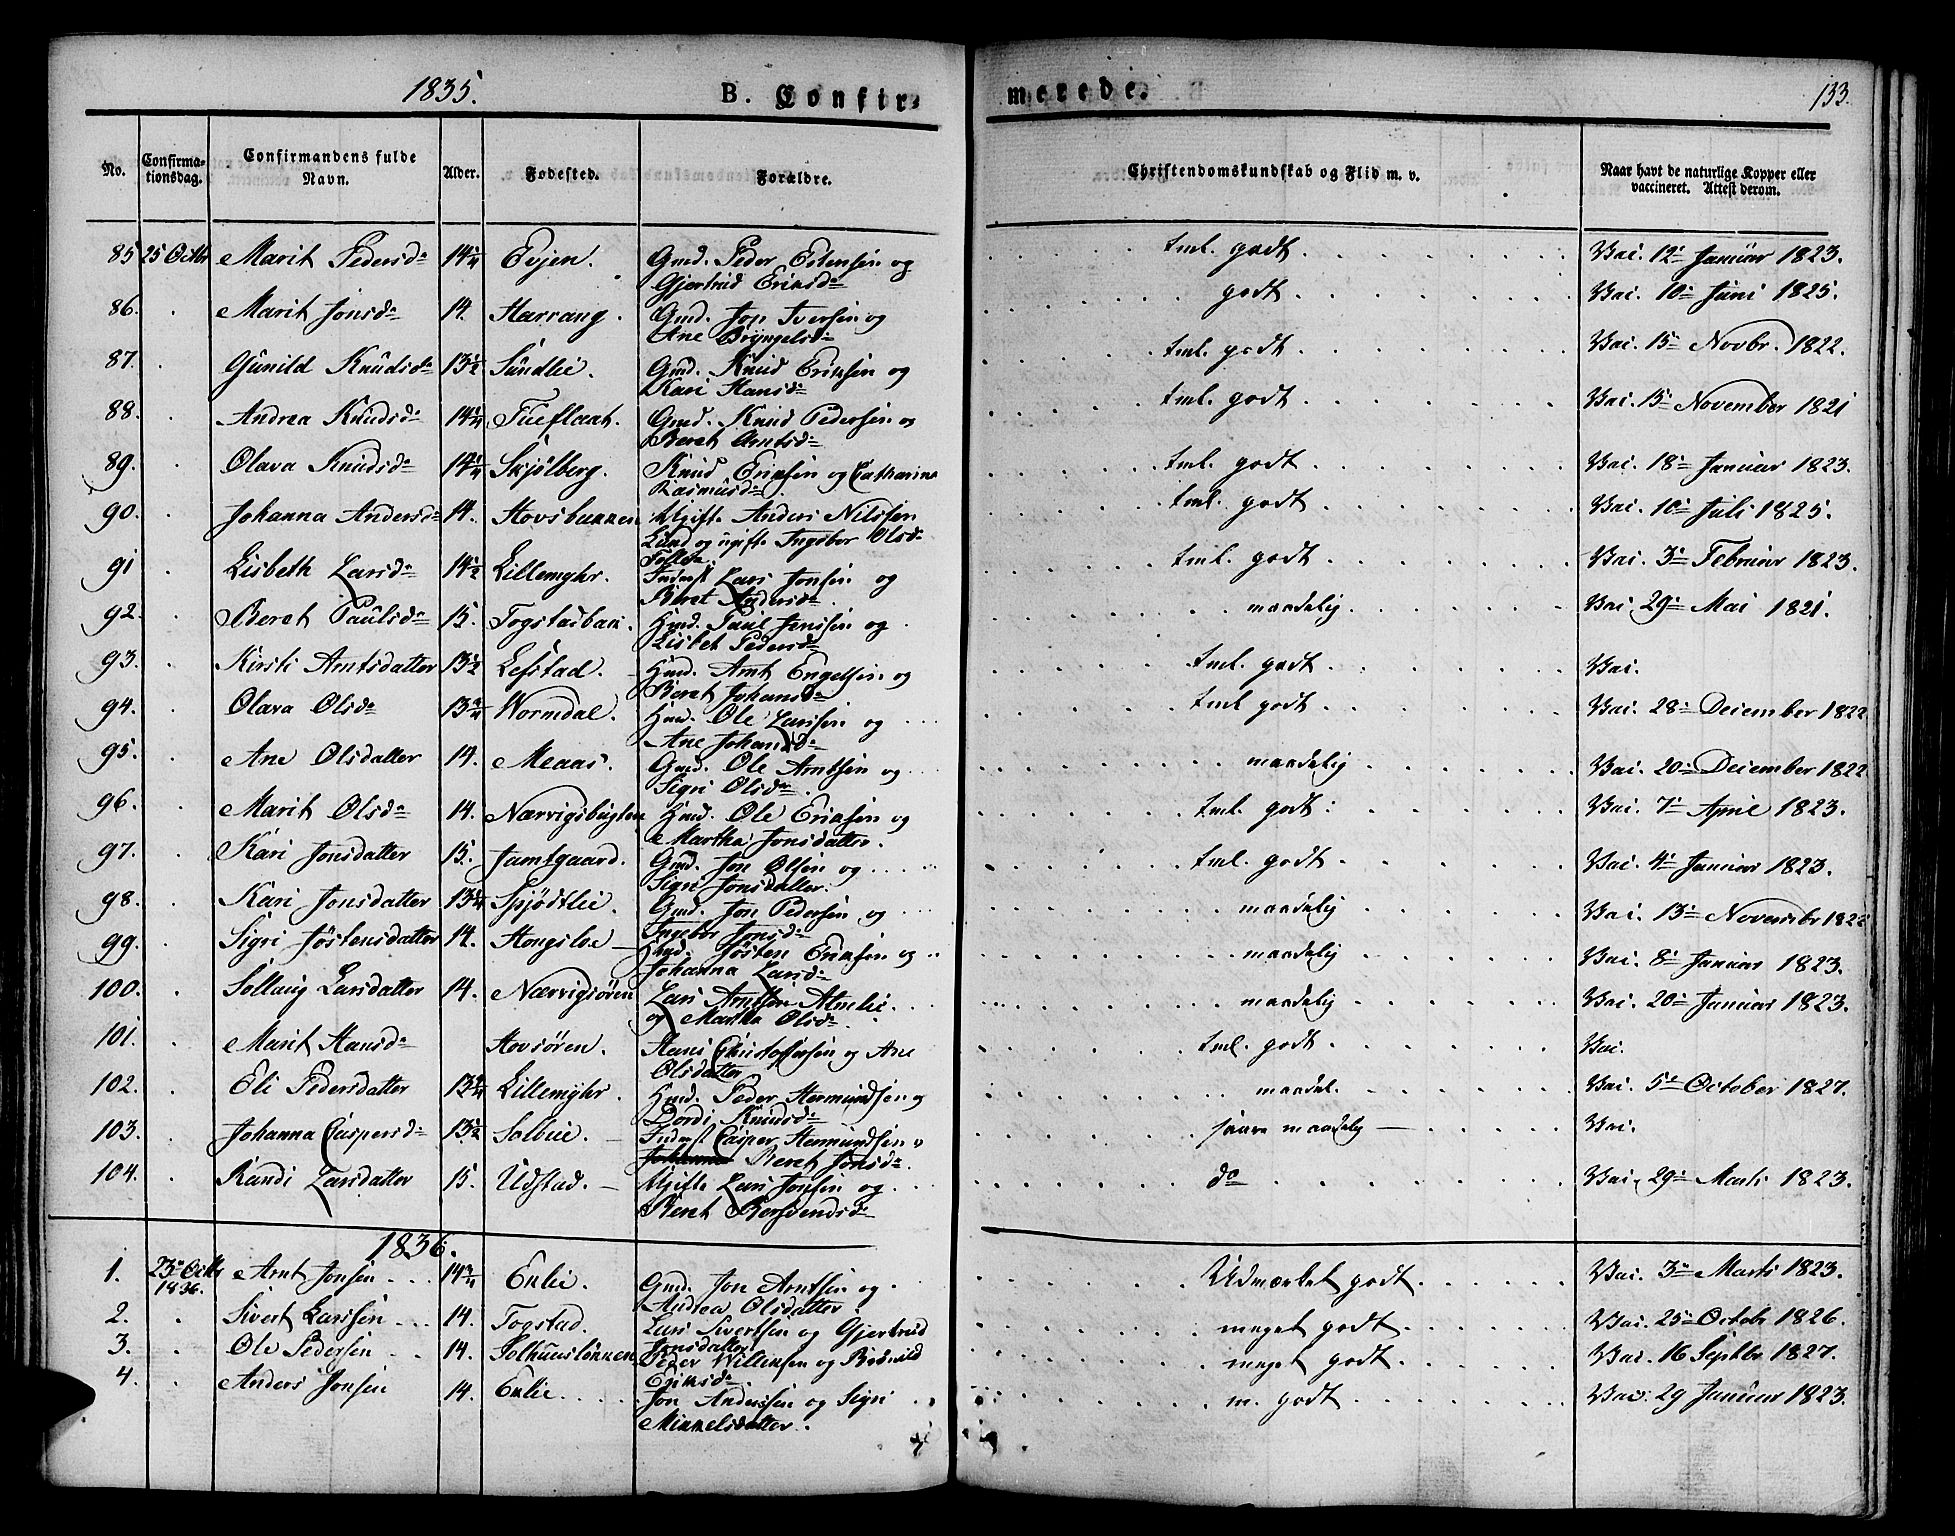 1835. B. Confirmerede. 133.
No. Confirmationsdag. Confirmandens fulde Navn. Alder. Fødested. Forældre. Christendomskundskab og Flid m. v. Naar havt de naturlige Kopper eller vaccineret. Attest derom.
85 25 Octbr Marit Pedersd. 14 1/4 Evjen. Gmd. Peder Estensen og Gjertrud Eriksd. tml. godt Vac. 12 Januar 1823.
86. Marit Jonsd. 14. Harrang. Gmd. Jon Iversen og Ane Bryngelsd. godt Vac. 10 Juni 1825.
87. Gunild Knudsd. 13 1/2 Sundlie. Gmd. Knud Eriksen og Kari Hansd. tml. godt Vac. 15 Novbr. 1822.
88. Andrea Knudsd. 14 1/4 Gmd. Knud Pedersen og Beret Arntsd. tml. godt Vac. 15 November 1821
89. Olava Knudsd. 14 1/4 Skjølberg. Knud Eriksen og Catharina Rasmusd. tml. godt Vac. 18 Januar 1823.
90. Johanna Andersd. 14. Hovsbakken Ugifte Anders Nilssen Lund og ugifte Ingebor Olsd. tml. godt Vac. 10 Juli 1825.
91 Lisbeth Larsd. 14 1/2 Lillemyhr. Inderst Lars Jonsen og Beret Andersd. tml. godt Vac. 3 Februar 1823.
92. Beret Paulsd. 15. Togstadbak. Hmd. Paul Jenssen og Lisbet Pedersd. maadelig Vac 29 Mai 1821.
93. Kirsti Arntsdatter 13 1/2 Lefstad. Hmd. Arnt Engelsen og Beret Johansd. tml. godt Vac.
94. Olava Olsd. 13 3/4 Wormdal. Hmd. Ole Larssen og Ane Johansd. tml godt Vac. 28 December 1822
95. Ane Olsdatter 14. Meaas. Gmd. Ole Arntsen og Sigri Olsd. maadelig Vac. 20 December 1822
96. Marit Olsd. 14. Nærvigsbugten Hmd. Ole Eriksen og Martha Jonsdatter. tml. godt Vac. 7 April 1823.
97. Kari Jonsdatter 15. Jamtgaard. Gmd. Jon Olsen og Sigri Jonsdatter. tml. godt Vac. 4 Januar 1823.
98. Kari Jonsdatter 13 3/4 Spjødtlie. Gmd. Jon Pedersen og Ingebor Jonsd. maadelig Vac. 13 Novembr 1822
99. Sigri Jøstensdatter 14. Hongsloe Hmd. Jøsten Eriksen og Johanna Larsd. maadelig Vac. 8 Januar 1823.
100. Sollaug Larsdatter 14. Nærvigsøren Lars Arntsen Almlie og Martha Olsd. maadelig Vac. 20 Januar 1823.
101. Marit Hansd. Hovsøren. Hans Christophersen og Ane Olsdatter tml. godt Vac.
102. Eli Pedersdatter 13 3/4 Lillemyhr. Hmd. Peder Hermundsen og Dordi Knudsd. maadel. Vac. 5 October 1827.
103. Johanna Caspersd. 13 1/2 Solblie. Inderst Casper Hermundsen o Johanna Beret Jonsd. saare maadelig Vac.
104. Randi Larsdatter 15. Udstad. Ugifte Lars Jonsen og Beret Borsvendsd. do Vac. 29 Marts 1823.
1836.
1. 23 Octbr 1836. Arnt Jonsen 14 3/4 Enlie. Gmd. Jon Arntsen og Andrea Olsdatter. Udmærket godt. Vac. 3 Marts 1823.
2. Sivert Larssen 14. Togstad. Lars Sivertsen og Gjertrud Jonsdatter meget godt Vac. 25 Octobr 1826.
3. Ole Pedersen 14. Peder Willemsen og Eriksd. meget godt Vac. 16 Septbr 1827.
4. Anders Jonsen 14. Enlie. Jon Anderssen og Sigri Mikkelsdatter. m. godt Vac. 29 Januar 1823.